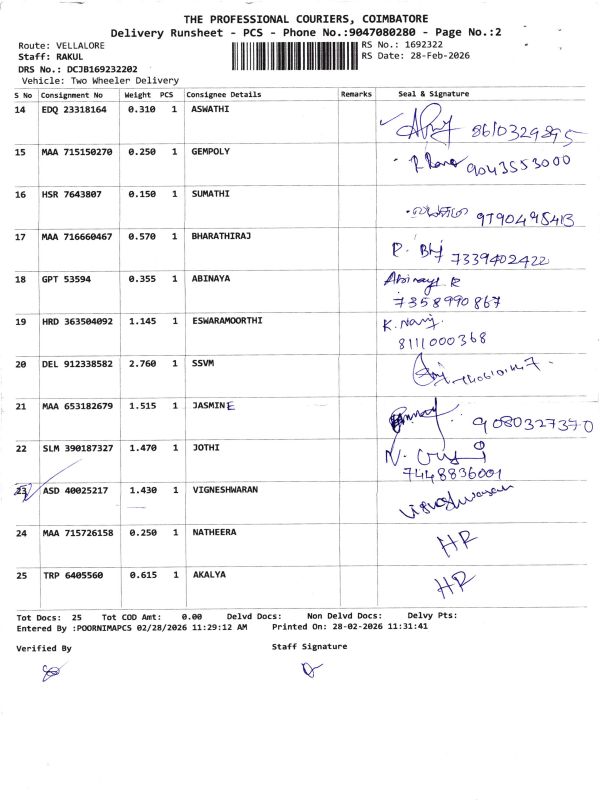 THE PROFESSIONAL COURIERS, COIMBATORE
Delivery Runsheet - PCS - Phone No.:9047080280 - Page No.:2
Route: VELLALORE
RS No.: 1692322
Staff: RAKUL
RS Date: 28-Feb-2026
DRS No.: DCJB169232202
Vehicle: Two Wheeler Delivery
S No Consignment No Weight PCS Consignee Details Remarks Seal & Signature
14 EDQ 23318164 0.310 1 ASWATHI 8610329895
15 MAA 715150270 0.250 1 GEMPOLY 9043553000
16 HSR 7643807 0.150 1 SUMATHI 9790495413
17 MAA 716660467 0.570 1 BHARATHIRAJ 7339402422
18 GPT 53594 0.355 1 ABINAYA Abinaya R
7358990867
19 HRD 363504092 1.145 1 ESWARAMOORTHI
8111000368
20 DEL 912338582 2.760 1 SSVM
21 MAA 653182679 1.515 1 JASMINE 9080327370
22 SLM 390187327 1.470 1 JOTHI
7448836001
23 ASD 40025217 1.430 1 VIGNESHWARAN Vigneshwaran
24 MAA 715726158 0.250 1 NATHEERA HR
25 TRP 6405560 0.615 1 AKALYA HR
Tot Docs: 25 Tot COD Amt: 0.00 Delvd Docs: Non Delvd Docs: Delvy Pts:
Entered By :POORNIMAPCS 02/28/2026 11:29:12 AM Printed On: 28-02-2026 11:31:41
Verified By Staff Signature